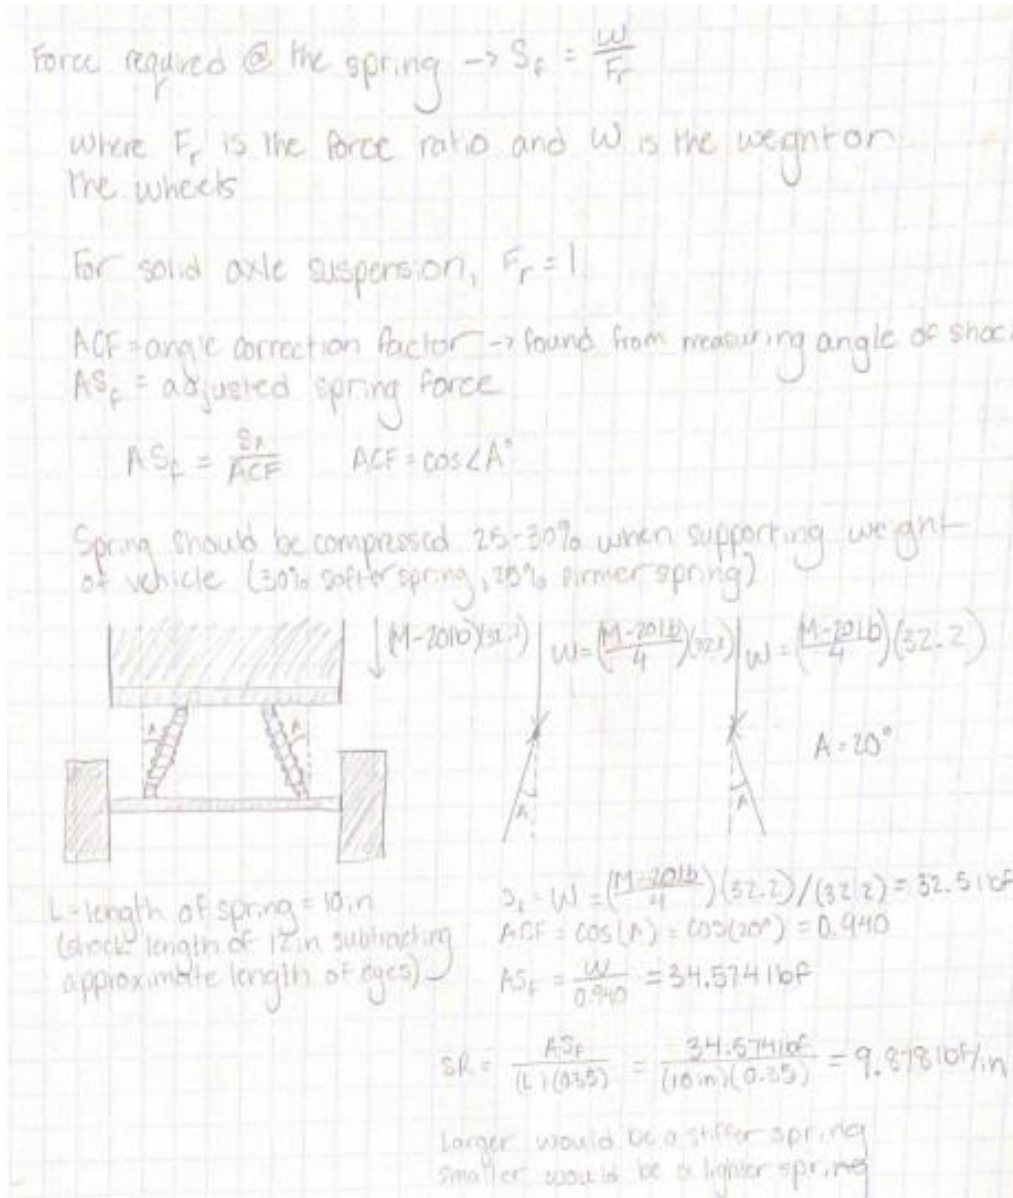 Force required @ the spring → S_f = W/F_r
where F_r is the force ratio and W is the weight on
the wheels
For solid axle suspension, F_r = 1
ACF = angle correction factor → found from measuring angle of shoc
AS_f = adjusted spring force
AS_f = S_f/ACF ACF = cos∠A°
Spring should be compressed 25-30% when supporting weight
of vehicle (30% softer spring, 25% firmer spring)
↓ (M-20lb)(32.2) W = ((M-20lb)/4)(32.2) W = ((M-20lb)/4)(32.2)
A A
A = 20°
A A
L = length of spring = 10in
(shock length of 12in subtracting
approximate length of eyes)
S_f = W = ((M-20lb)/4)(32.2)/(32.2) = 32.5 lbf
ACF = cos(A) = cos(20°) = 0.940
AS_f = W/0.940 = 34.574 lbf
SR = AS_f/((L)(0.35)) = 34.574lbf/((10in)(0.35)) = 9.878 lbf/in
Larger would be a stiffer spring
smaller would be a lighter spring